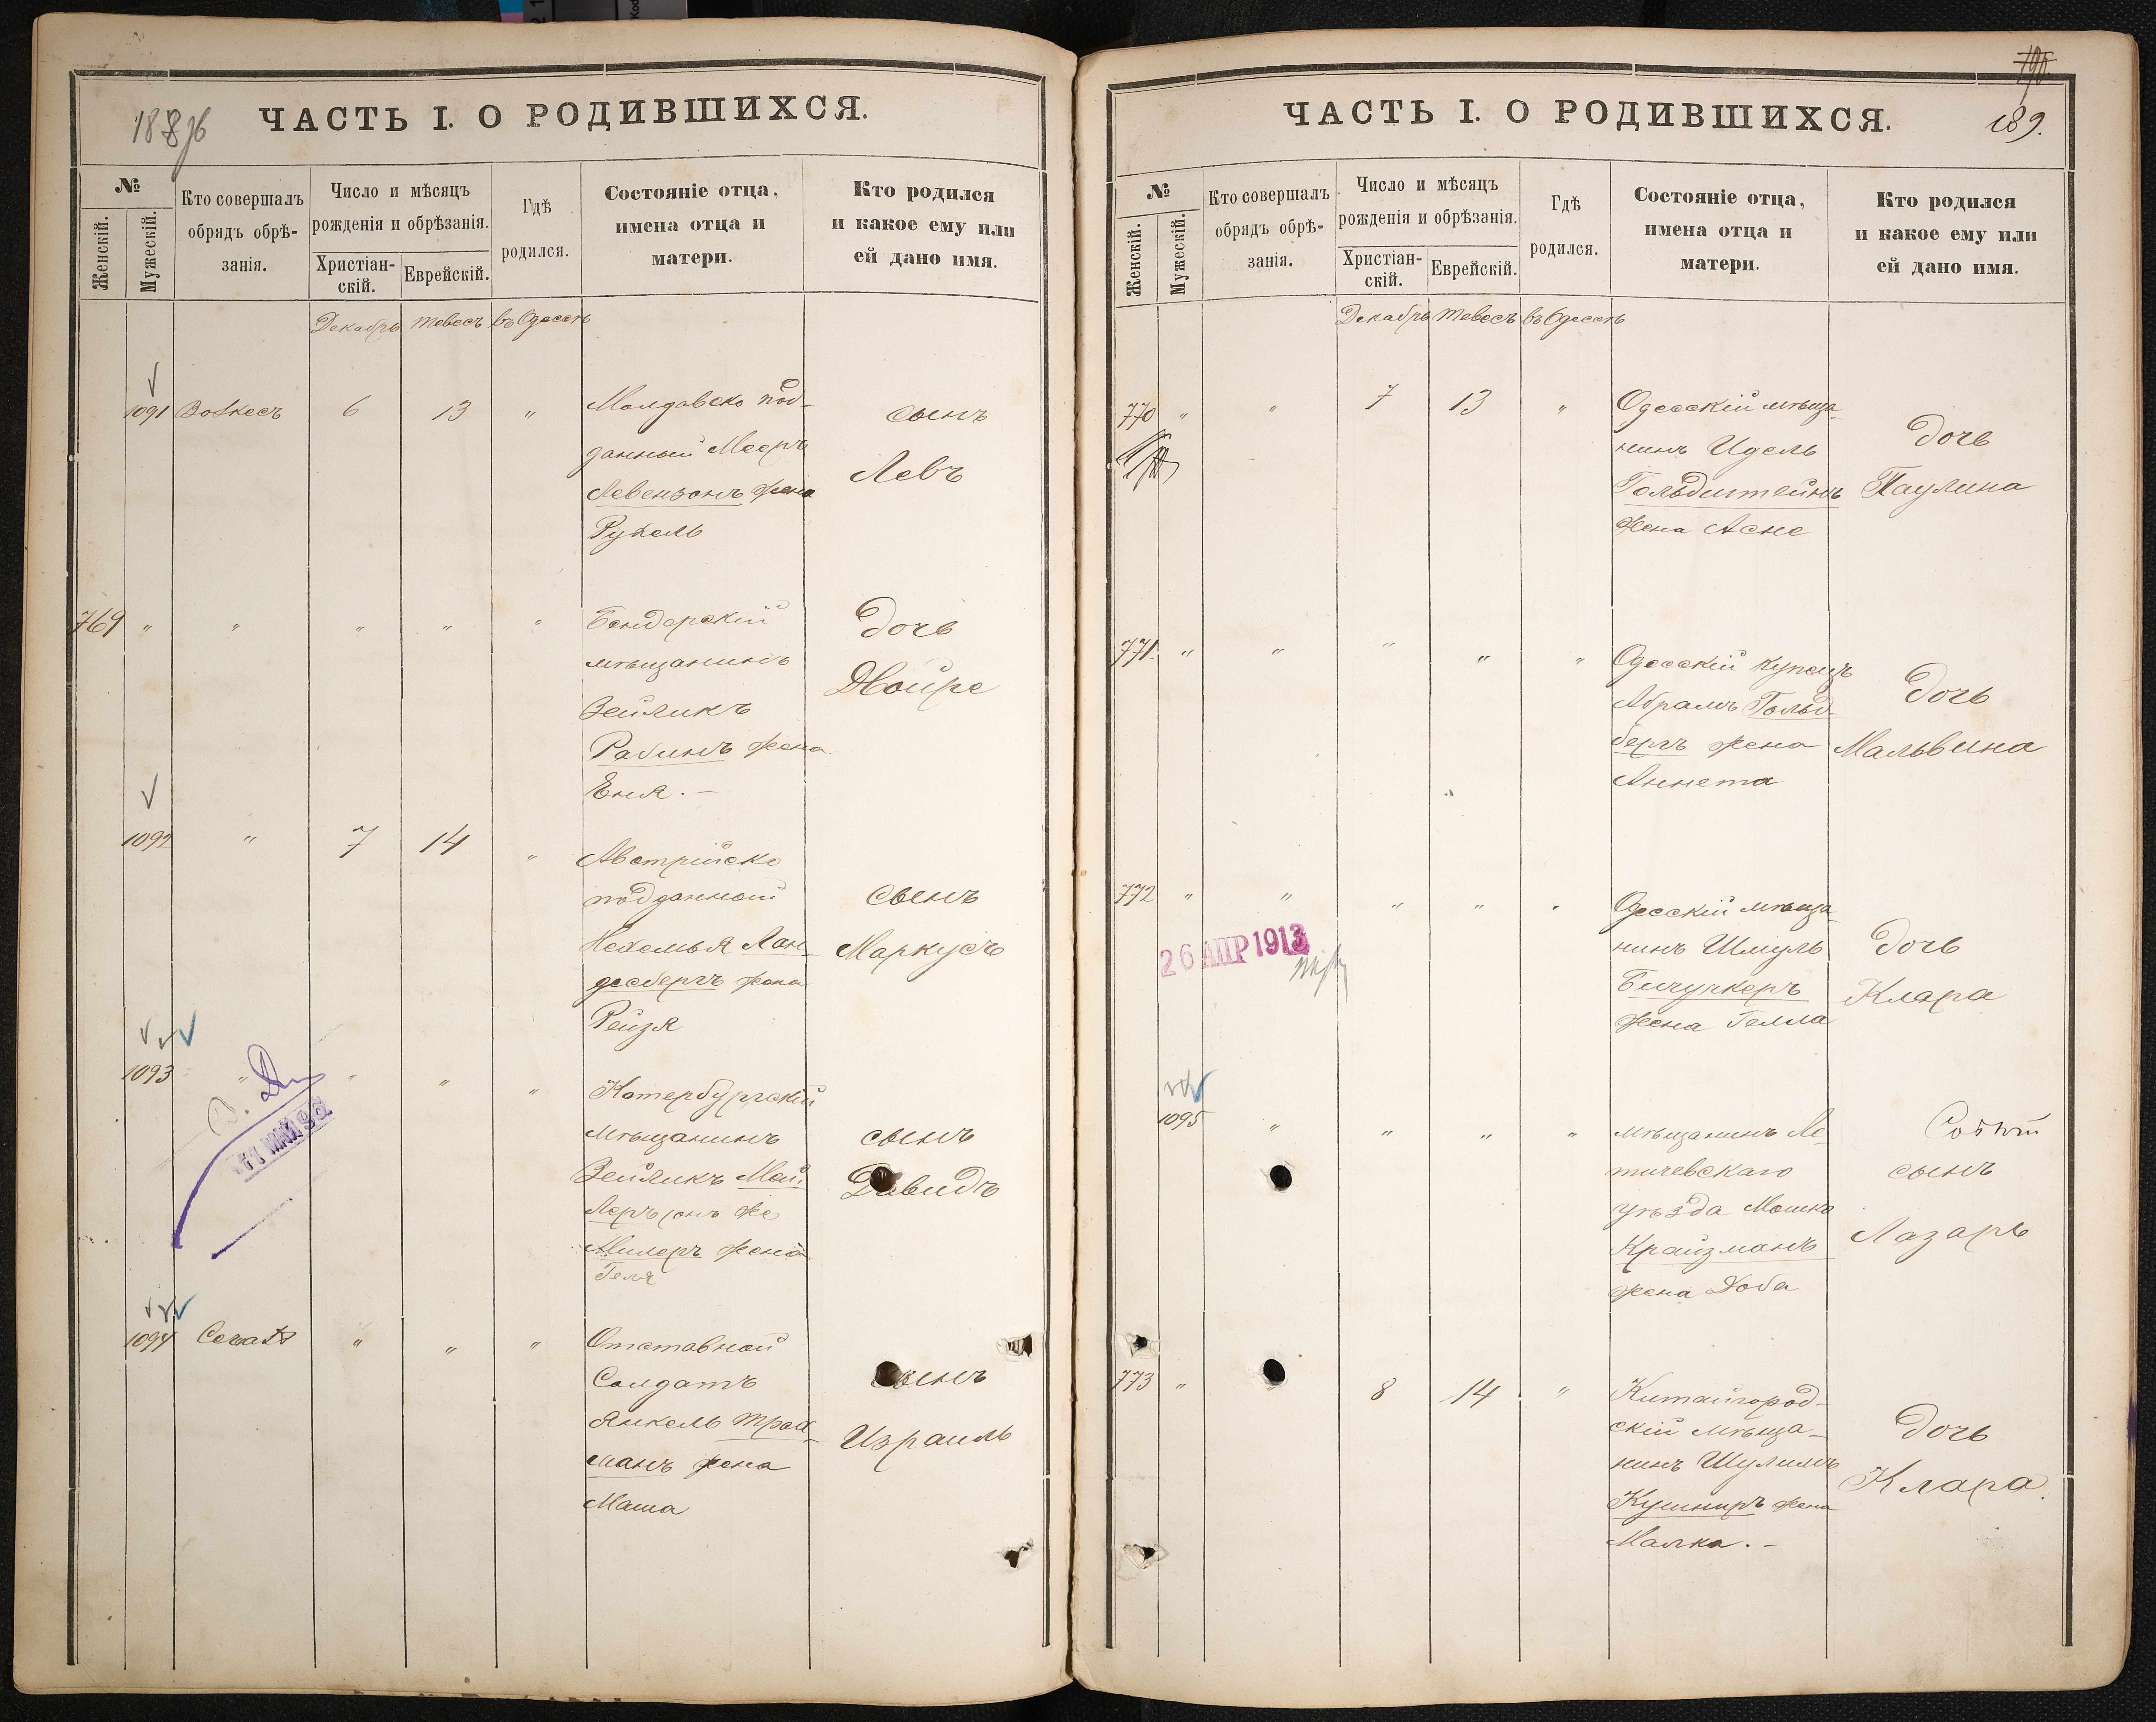 ЧАСТЬ I. О РОДИВШИХСЯ.
№
Женскій.
Мужескій.
Кто совершалъ
обрядъ обрѣ-
занія.
Число и мѣсяцъ
рожденія и обрѣзанія.
Христіан-
скій.
Еврейскій.
Гдѣ
родился.
Состояніе отца,
имена отца и
матери.
Кто родился
и какое ему или
ей дано имя.
Декабрь Тевесъ въ Одессѣ
1091 6 13 "
Молдавско под-
данный Мееръ
Левензонъ жена
Рухель
сынъ
Левъ
769 " " " " "
Бендерскій
мѣщанинъ
Зейликъ
Рабинъ жена
Еня. —
дочь
Двойре
1092 " 7 14 "
Австрійско
подданный
Нехемья Лан-
десбергъ жена
Рейзя
сынъ
Маркусъ
1093 " " " "
Котербургскій
мѣщанинъ
Зейликъ
Милеръ жена
Геля
сынъ
Давидъ
1094 " " "
Отставной
Солдатъ
Янкель
манъ жена
Маша
сынъ
Израиль
ЧАСТЬ I. О РОДИВШИХСЯ.
189.
№
Женскій.
Мужескій.
Кто совершалъ
обрядъ обрѣ-
занія.
Число и мѣсяцъ
рожденія и обрѣзанія.
Христіан-
скій.
Еврейскій.
Гдѣ
родился.
Состояніе отца,
имена отца и
матери.
Кто родился
и какое ему или
ей дано имя.
Декабрь Тевесъ въ Одессѣ
770 " " 7 13 "
Одесскій мѣща-
нинъ Идель
Гольдштейнъ
жена Асне
дочь
Паулина
771 " " " " "
Одесскій купецъ
Абрамъ Гольд-
бергъ жена
Аннета
дочь
Мальвина
772 " " " " "
26 АПР 1913
Одесскій мѣща-
нинъ Шмуль
Бичучкеръ
жена Гелла
дочь
Клара
1095 " " " "
мѣщанинъ Ле-
тичевскаго
уѣзда Мошко
Крайзманъ
жена Доба
сынъ
Лазарь
773 " 8 14 "
Китайгород-
скій мѣща-
нинъ Шулимъ
Кушниръ жена
Малка. —
дочь
Клара